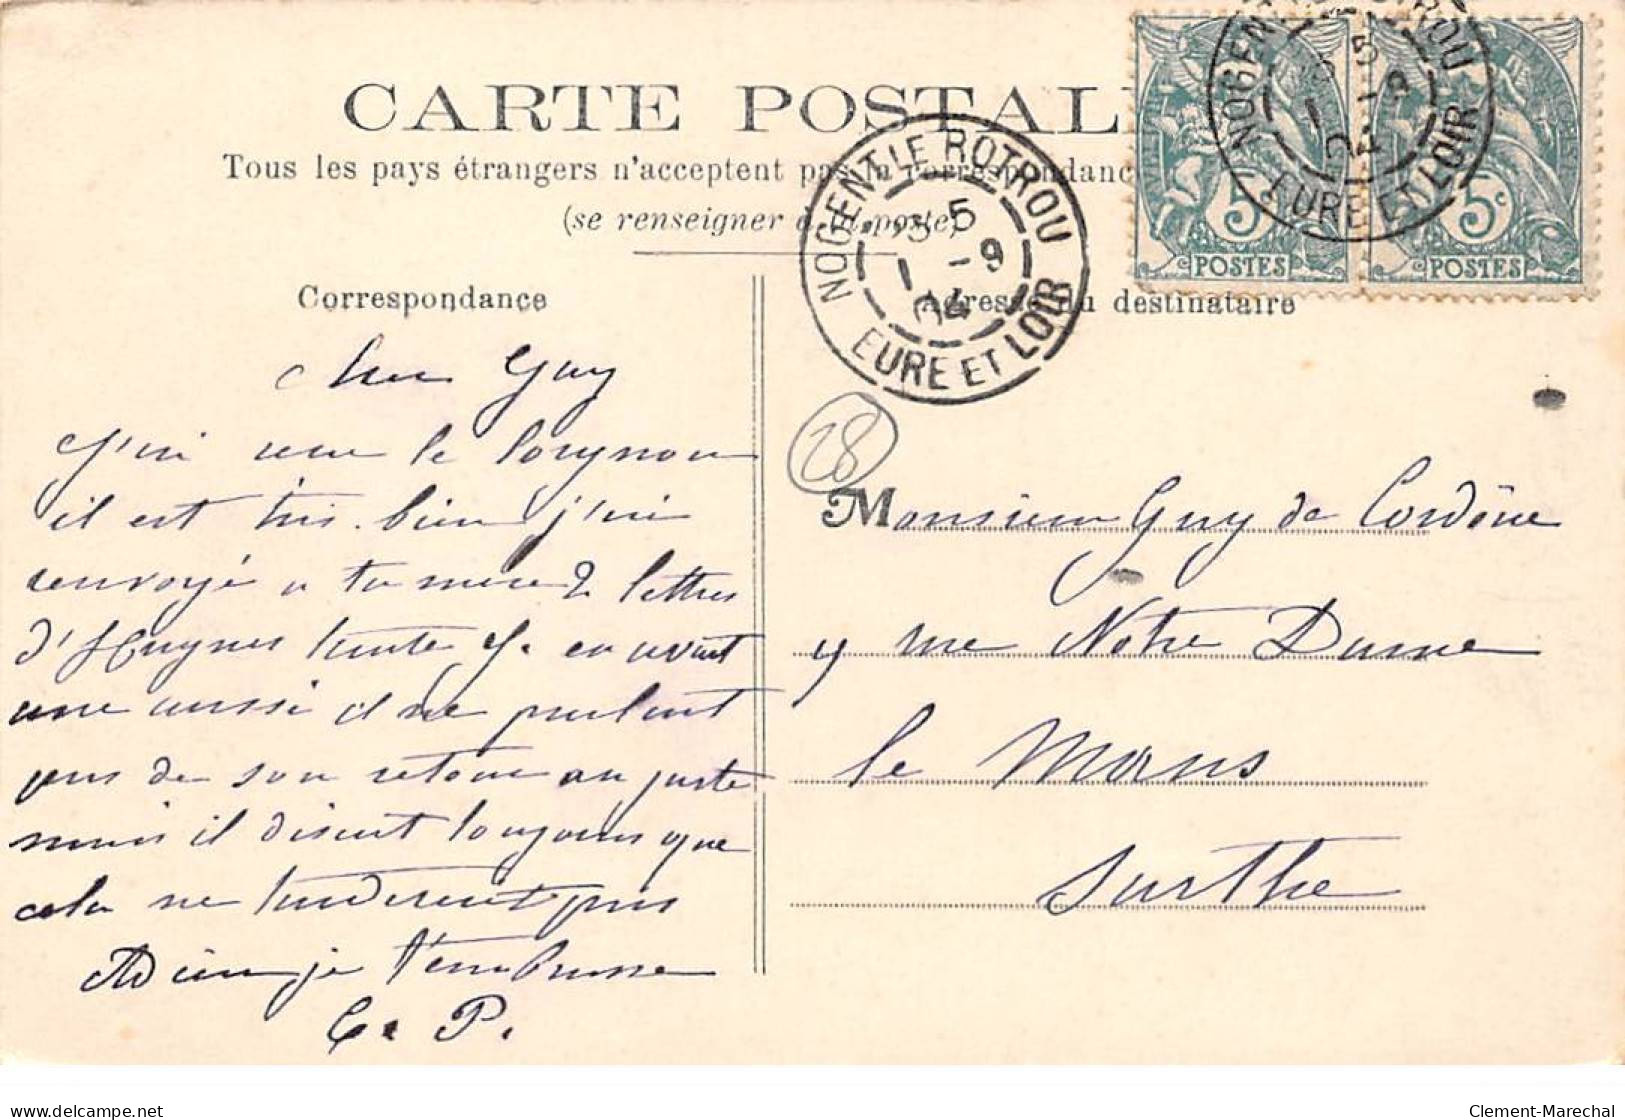 CARTE POSTAL
Tous les pays étrangers n'acceptent pas la correspondanc
(se renseigner à la poste)
NOGENT-LE-ROTROU
5
-9
04
EURE ET LOIR
NOGENT ROTROU
5
-9
04
EURE ET LOIR
5
POSTES
5c
POSTES
Correspondance
Adresse du destinataire
28
cher Guy
J'ai reçu le lorgnon
il est très bien j'ai
renvoyé a ta mere 2 lettres
d' tante J. en avait
une aussi il ne parlent
pas de son retour au juste
mais il disent toujours que
cela ne tarderait pas
Adieu je t'embrasse
C. P.
Monsieur Guy de Cordoüe
y rue Notre Dame
le Mans
Sarthe
delcampe.net
Clement-Marechal